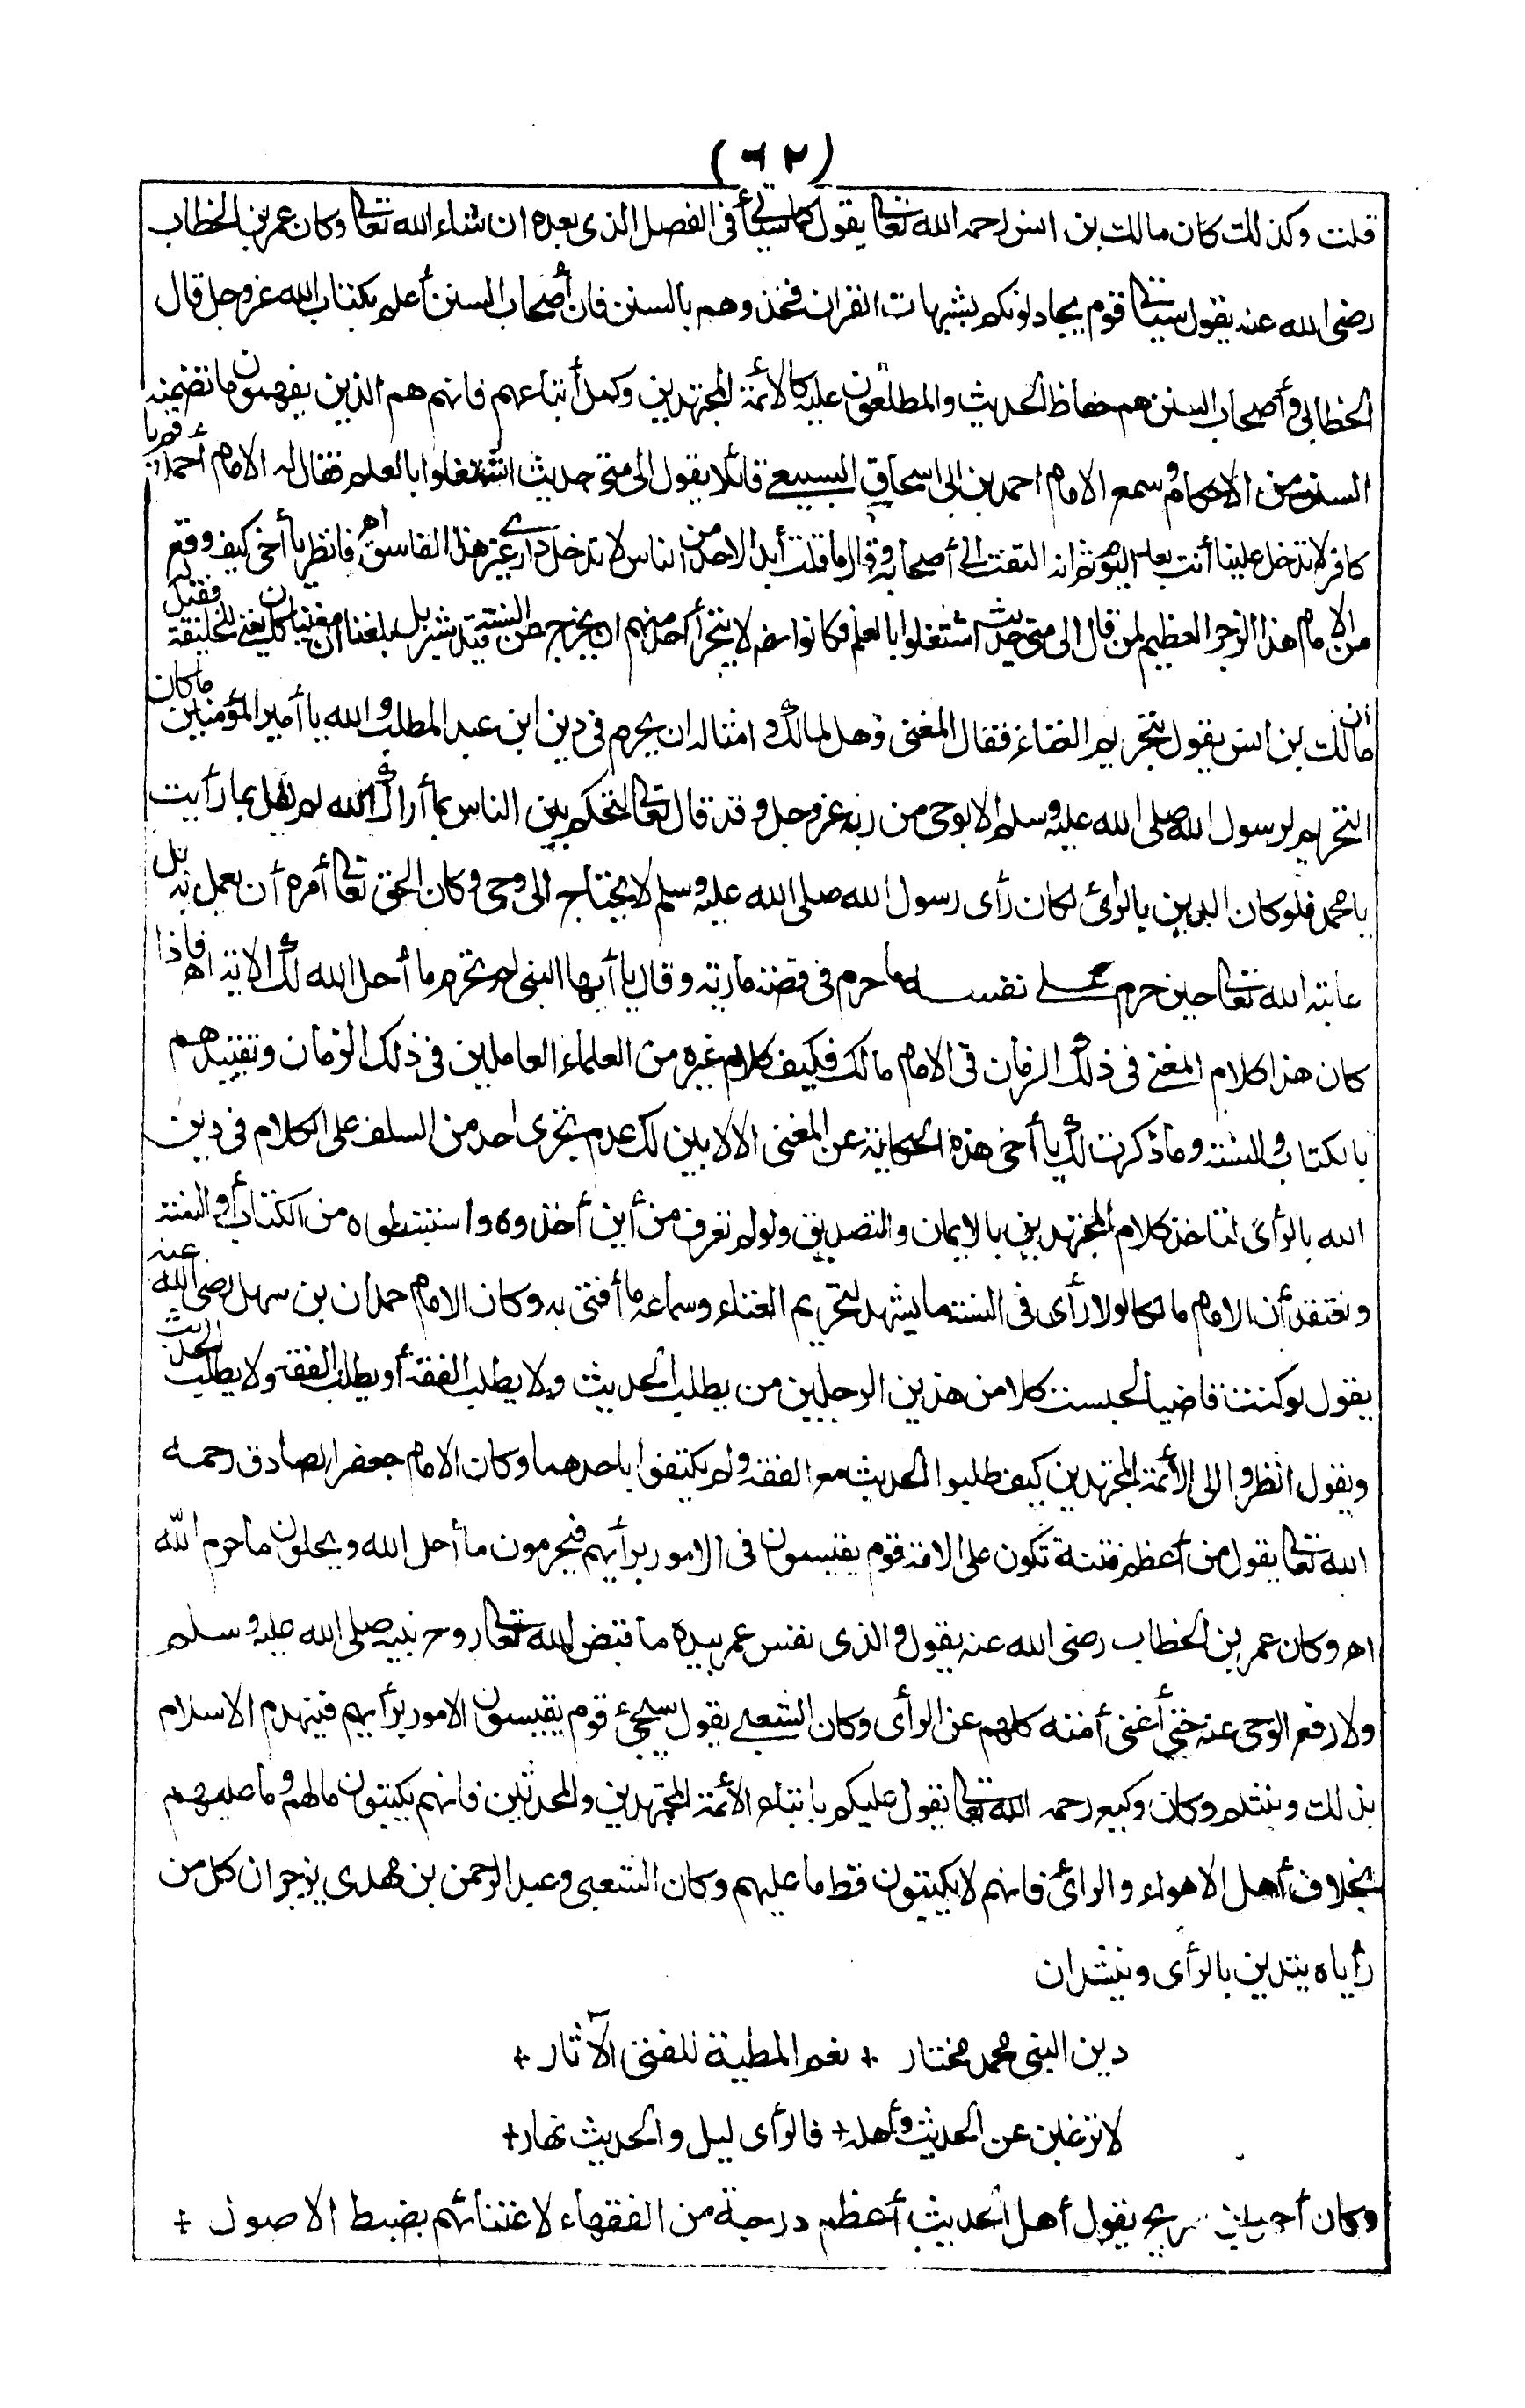 (٦٢)
قلت وكذلك كان مالك بن انس رحمه الله تعالى يقول كما سيأتى فى الفصل الذى بعده ان شاء الله تعالى وكان عمر بن الخطاب
رضى الله عنه يقول سيأتى قوم يجادلونكم بشبهات القران فخذوهم بالسنن فان أصحاب السنن أعلم بكتاب الله عزوجل قال
الخطابى وأصحاب السنن هم حفاظ الحديث والمطلعون عليه كالأئمة المجتهدين وكمل أتباعهم فانهم هم الذين يفهمون ما تضمنه
السنن من الاحكام وسمع الامام احمد بن ابى اسحاق السبيعى قائلا يقول الى متى حديث اشتغلوا بالعلم فقال له الامام أحمد قم يا
كافر لا تدخل علينا أنت بعد اليوم ثم انه التفت الى أصحابه وقال ما قلت أبدا لاحد من الناس لا تدخل دارى غير هذا الفاسق اھ فانظر يا أخى كيف وقع
من الامام هذا الزجر العظيم لمن قال الى متى حديث اشتغلوا بالعلم فكانوا رضه لا يتجرأ أحد منهم ان يخرج عن السنة قيد شبر بل بلغنا ان مغنيا كان يغنى للخليفة فقيل له
ان مالك بن انس يقول بتحريم الغناء فقال المغنى وهل لمالك وامثاله ان يحرم فى دين ابن عبد المطلب والله يا أمير المؤمنين ما كان
التحريم لرسول الله صلى الله عليه وسلم الا بوحى من ربه عزوجل وقد قال تعالى لتحكم بين الناس بما أراك الله لم يقل بما رأيت
يا محمد فلو كان الدين بالرأى لكان رأى رسول الله صلى الله عليه وسلم لا يحتاج الى وحى وكان الحق تعالى أمره أن يعمل به بل
عاتبه الله تعالى حين حرم على نفسه ما حرم فى قصة مارية وقال يا أيها النبى لم تحرم ما أحل الله لك الاية اھ فاذا
كان هذا كلام المغنى فى ذلك الزمان فى الامام مالك فكيف كلام غيره من العلماء العاملين فى ذلك الزمان وتقييدهم
بالكتاب والسنة وما ذكرت لك يا أخى هذه الحكاية عن المغنى الا لابين لك عدم تجرى احد من السلف على الكلام فى دين
الله بالرأى لتاخذ كلام المجتهدين بالايمان والتصديق ولو لم تعرف من أين أخذوه واستنبطوه من الكتاب أو السنة
ونعتقد أن الامام مالكا لولا رأى فى السنة ما يشهد لتحريم الغناء وسماعه ما أفتى به وكان الامام حمدان بن سهل رضى الله عنه
يقول لو كنت قاضيا لحبست كلا من هذين الرجلين من يطلب الحديث ولا يطلب الفقه أو يطلب الفقه ولا يطلب الحديث
ويقول انظروا الى الأئمة المجتهدين كيف طلبوا الحديث مع الفقه ولم يكتفوا باحدهما وكان الامام جعفر الصادق رحمه
الله تعالى يقول من أعظم فتنة تكون على الامة قوم يقيسون فى الامور برأيهم فيحرمون ما أحل الله ويحلون ما حرم الله
اھ وكان عمر بن الخطاب رضى الله عنه يقول والذى نفس عمر بيده ما قبض الله تعالى روح نبيه صلى الله عليه وسلم
ولا رفع الوحى عنه حتى أغنى أمته كلهم عن الرأى وكان الشعبى يقول سيجئ قوم يقيسون الامور برأيهم فينهدم الاسلام
بذلك وينثلم وكان وكيع رحمه الله تعالى يقول عليكم باتباع الأئمة المجتهدين والمحدثين فانهم يكتبون مالهم وما عليهم
بخلاف أهل الاهواء والرأى فانهم لا يكتبون قط ما عليهم وكان الشعبى وعبد الرحمن بن مهدى يزجران كل من
رأياه يتدين بالرأى وينشدان
دين النبى محمد مختار + نعم المطية للفتى الآثار +
لا ترغبن عن الحديث وأهله + فالرأى ليل والحديث نهار +
وكان أحمد بن سريج يقول أهل الحديث أعظم درجة من الفقهاء لاعتنائهم بضبط الاصول +